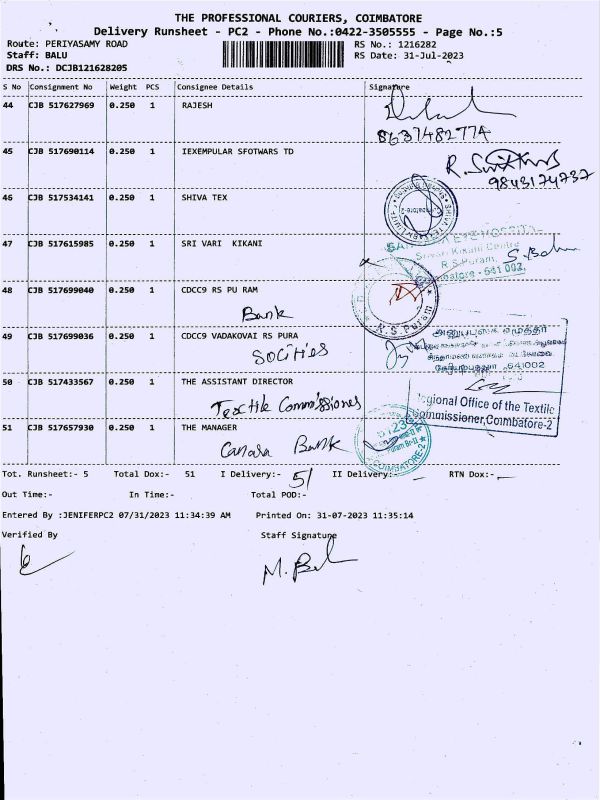 THE PROFESSIONAL COURIERS, COIMBATORE
Delivery Runsheet - PC2 - Phone No.:0422-3505555 - Page No.:5
Route: PERIYASAMY ROAD
RS No.: 1216282
Staff: BALU
RS Date: 31-Jul-2023
DRS No.: DCJB121628205
S No Consignment No Weight PCS Consignee Details Signature
44 CJB 517627969 0.250 1 RAJESH
8637482774
45 CJB 517690114 0.250 1 IEXEMPULAR SFOTWARS TD
9843174737
46 CJB 517534141 0.250 1 SHIVA TEX
47 CJB 517615985 0.250 1 SRI VARI KIKANI
Kikani Centre
R.S.Puram,
641 002
48 CJB 517699040 0.250 1 CDCC9 RS PU RAM
Bank
R.S.Puram
49 CJB 517699036 0.250 1 CDCC9 VADAKOVAI RS PURA
Socities
641002
50 CJB 517433567 0.250 1 THE ASSISTANT DIRECTOR
Textile Commissiones
Regional Office of the Textile
Commissioner,Coimbatore-2
51 CJB 517657930 0.250 1 THE MANAGER
Canara Bank
COIMBATORE-2
Tot. Runsheet:- 5 Total Dox:- 51 I Delivery:- 51 II Delivery:- RTN Dox:-
Out Time:- In Time:- Total POD:-
Entered By :JENIFERPC2 07/31/2023 11:34:39 AM Printed On: 31-07-2023 11:35:14
Verified By Staff Signature